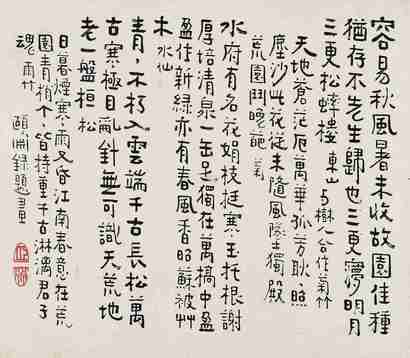 容易秋風暑未收故園佳種
猶存不先生歸也三更夢明月
三更松樓 東山与樹人公住菊竹
天地蒼茫萬華孤芳耿耿照
塵沙此花從未隨風墜土獨殿
荒園鬥晚葩 菊
水府有名花娟枝挺寒玉托根謝
厚培清泉一缶足獨在萬槁中盈
盈住新綠亦有春風香昭蘇被艸
木 水仙
青青不朽入雲端千古長松萬
古寒極目針無可識天荒地
老一盤桓 松
日暮煙寒雨又昏江南春意在荒
園青梢个个皆持重千古淋漓君子
魂 雨竹
頤淵錄題畫